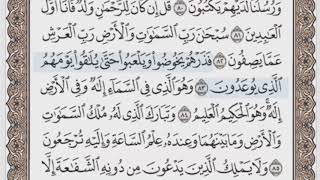 وَرُسُلُنَا لَدَيْهِمْ يَكْتُبُونَ ٨٠ قُلْ إِن كَانَ لِلرَّحْمَٰنِ وَلَدٌ فَأَنَا أَوَّلُ
ٱلْعَٰبِدِينَ ٨١ سُبْحَٰنَ رَبِّ ٱلسَّمَٰوَٰتِ وَٱلْأَرْضِ رَبِّ ٱلْعَرْشِ
عَمَّا يَصِفُونَ ٨٢ فَذَرْهُمْ يَخُوضُوا۟ وَيَلْعَبُوا۟ حَتَّىٰ يُلَٰقُوا۟ يَوْمَهُمُ
ٱلَّذِى يُوعَدُونَ ٨٣ وَهُوَ ٱلَّذِى فِى ٱلسَّمَآءِ إِلَٰهٌ وَفِى ٱلْأَرْضِ
إِلَٰهٌ وَهُوَ ٱلْحَكِيمُ ٱلْعَلِيمُ ٨٤ وَتَبَارَكَ ٱلَّذِى لَهُۥ مُلْكُ ٱلسَّمَٰوَٰتِ
وَٱلْأَرْضِ وَمَا بَيْنَهُمَا وَعِندَهُۥ عِلْمُ ٱلسَّاعَةِ وَإِلَيْهِ تُرْجَعُونَ
٨٥ وَلَا يَمْلِكُ ٱلَّذِينَ يَدْعُونَ مِن دُونِهِ ٱلشَّفَٰعَةَ إِلَّا